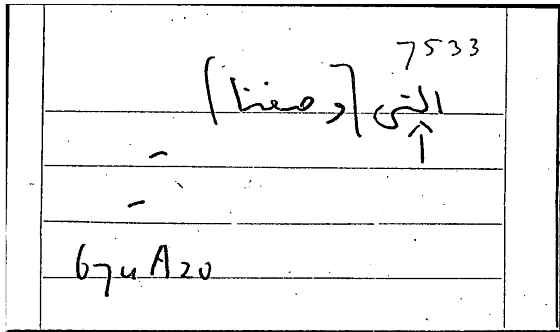 7533
التى [وصفنا]
674A20